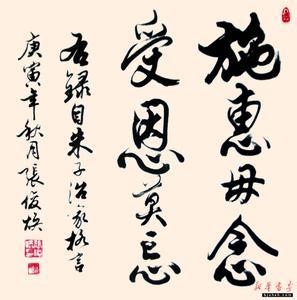 施惠毋念
受恩莫忘
右録自朱子治家格言
庚寅年秋月張俊煥